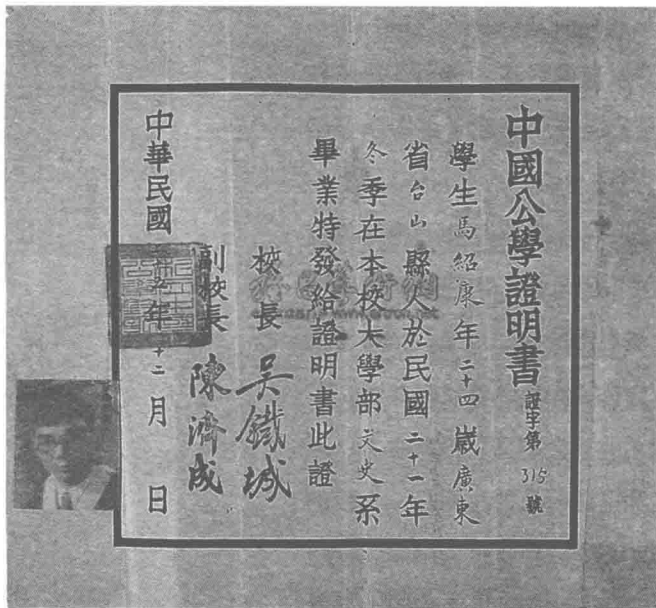 中國公學證明書 證字第315號
學生馬紹康年二十四歲廣東
省台山縣人於民國二十一年
冬季在本校大學部文史系
畢業特發給證明書此證
校長 吳鐵城
副校長 陳濟成
中華民國 年十二月 日